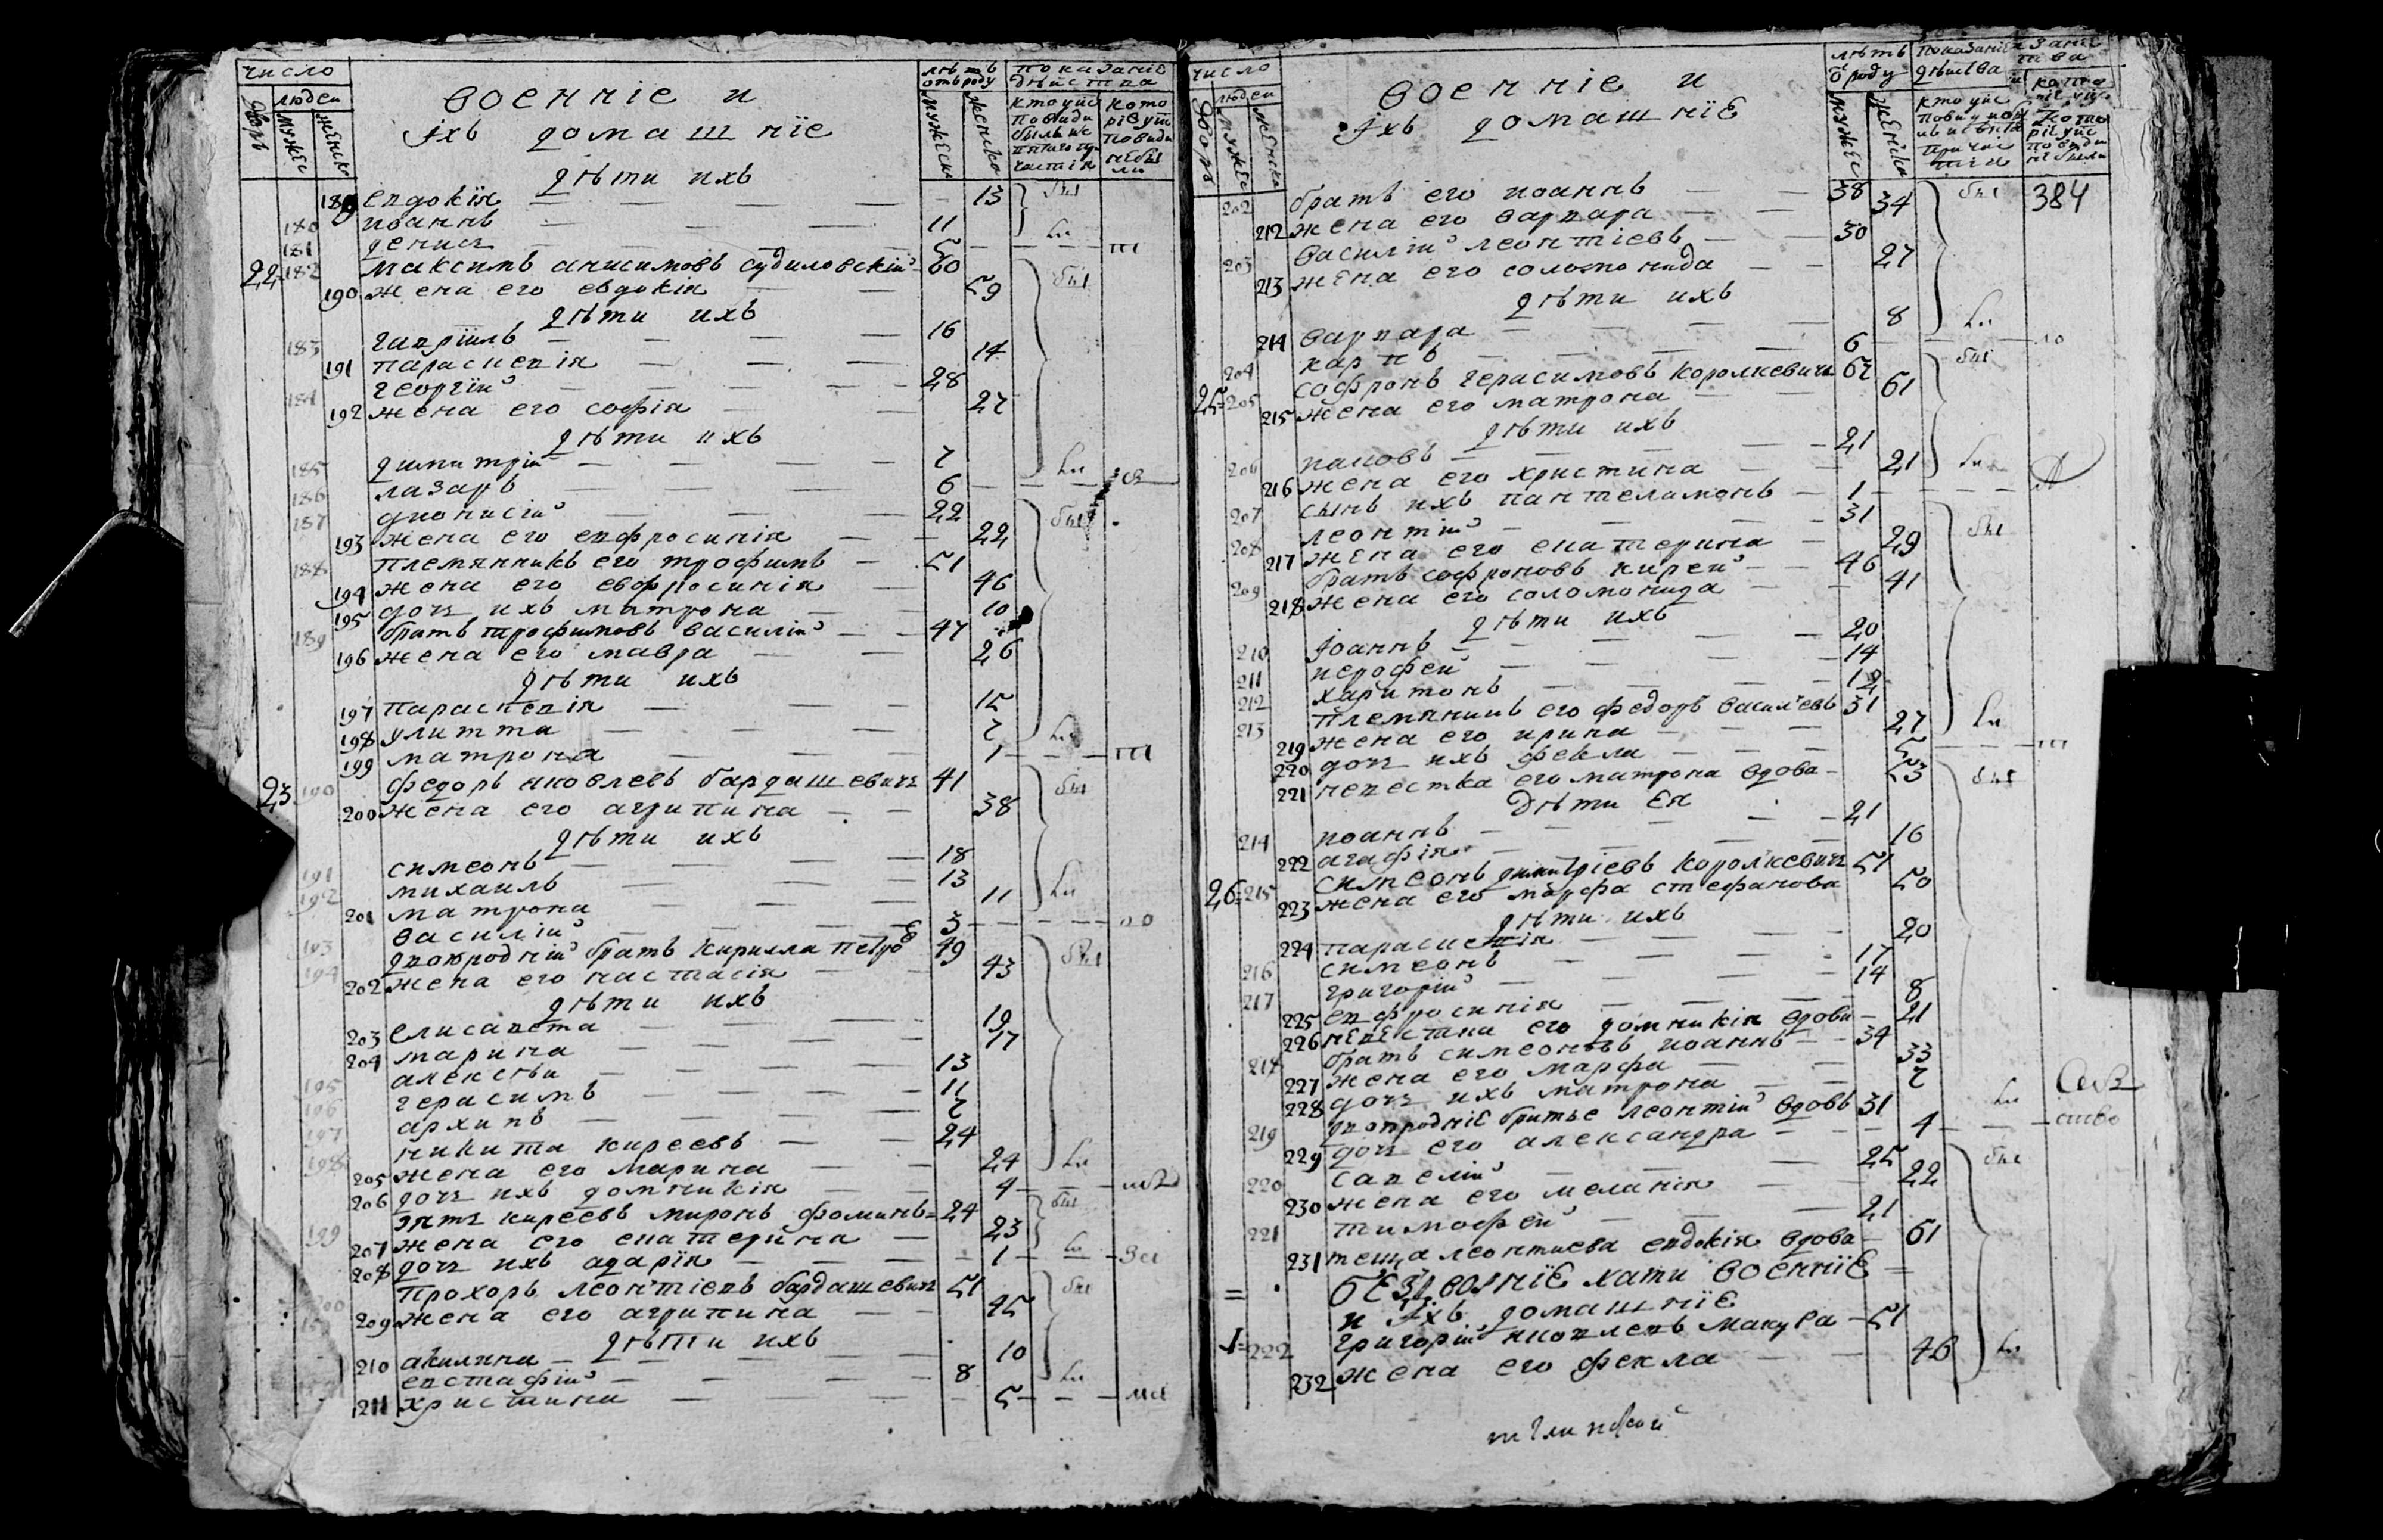 число
людеи
дворъ
мужес
женско
военніе и
Іхъ домашніе
лѣтъ
отъ роду
мужеск
женско
показаніе
дѣиства
дѣти ихъ
189 евдокія 13 бы
180 иоаннъ 11 ли
181 денисъ 5
22 182 максимъ анисимовъ судиловскій 60
190 жена его евдокія 59 бы
дѣти ихъ
183 гавріилъ 16
191 параскевія 14
184 георгій 28
192 жена его софія 27
дѣти ихъ
185 димитрій 7 ли
186 лазаръ 6
187 дионисій 22 бы
193 жена его евфросинія 22
188 племянникъ его трофимъ 51
194 жена его евфросинія 46
195 дочь ихъ матрона 10
189 братъ трофимовъ василій 47
196 жена его мавра 26
дѣти ихъ
197 параскевія 15
198 улитта 7 ли
199 матрона 1
23 190 федоръ яковлевъ бардашевичъ 41 бы
200 жена его агрипина 38
дѣти ихъ
191 симеонъ 18
192 михаилъ 13
201 матрона 11 ли
193 василій 3
194 двоюродній братъ кирилла петро 49 бы
202 жена его настасія 43
дѣти ихъ
203 елисавета 19
204 марина 17
195 алексѣи 13
196 герасимъ 11
197 архипъ 7
198 никита киреевъ 24
205 жена его марина 24 ли
206 дочь ихъ домникія 4
199 зять киреевъ миронъ фоминъ 24 бы
207 жена его екатерина 23
208 дочь ихъ адарія 1
200 прохоръ леонтіевъ бардашевичъ 51 бы
209 жена его агрипина 45
дѣти ихъ
210 акилина 10
евстафій 8 ли
211 христина 5
число
людеи
дворъ
мужес
женско
военніе и
Іхъ домашніЕ
лѣтъ
роду
мужес
женско
202 братъ его иоаннъ 38 бы 384
212 жена его варвара 34
203 василій леонтіевъ 30
213 жена его соломонида 27
дѣти ихъ
214 варвара 8 ли
204 карпъ 6
25 205 софронъ герасимовъ королкевичъ 62 бы
215 жена его матрона 61
дѣти ихъ
206 иаковъ 21
216 жена его христина 21 ли
207 сынъ ихъ пантелимонъ 1
208 леонтій 31 бы
217 жена его екатерина 29
209 братъ софроновъ кирей 46
218 жена его соломонида 41
дѣти ихъ
210 Іоаннъ 20
211 иерофеи 14
212 харитонъ 12
213 племянникъ его федоръ василевъ 31
219 жена его ирина 27 ли
220 дочь ихъ фекла 5
221 невестка его матрона вдова 53 бы
дѣти ея
214 иоаннъ 21
222 агафія 16
26 215 симеонъ димитріевъ королкевичъ 51
223 жена его марфа стефанова 50
дѣти ихъ
224 параскевія 20
216 симеонъ 17
217 григорій 14
225 евфросинія 8
226 невестка его домникія вдова 21
218 братъ симеоновъ иоаннъ 34
227 жена его марфа 33
228 дочь ихъ матрона 7 ли
219 двоюродніе братье леонтій вдовъ 31
229 дочь его александра 4
220 савелій 25 бы
230 жена его меланія 22
221 тимофеи 21
231 теща леонтиева евдокія вдова 61
бездворніе хати военніЕ
и Іхъ домашніЕ
1 222 григорій яковлевъ макуха 51
232 жена его фекла 46 ли